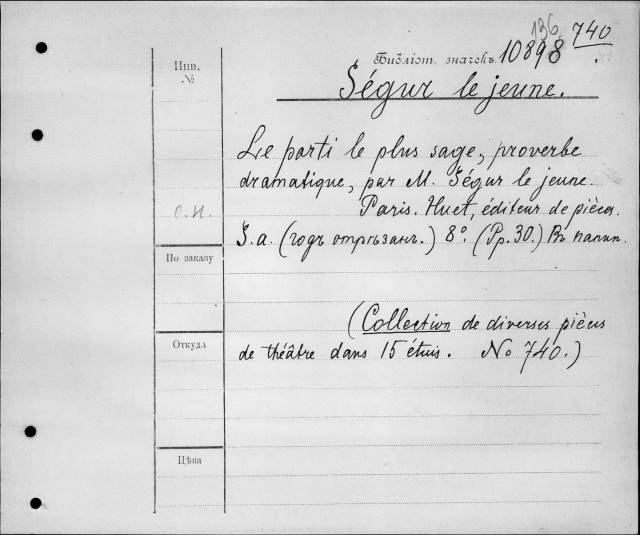 136. 740
Библіот. значекъ 10898.
Инв.
№
Ségur le jeune.
Le parti le plus sage, proverbe
dramatique, par M. Ségur le jeune.
Paris. Huet, éditeur de pièces.
С. И.
S. a. (годъ отрѣзанъ.) 8º. (Pp. 30.) Въ папк.
По заказу
(Collection de diverses pièces
Откуда
de théâtre dans 15 étuis. No 740.)
Цѣна